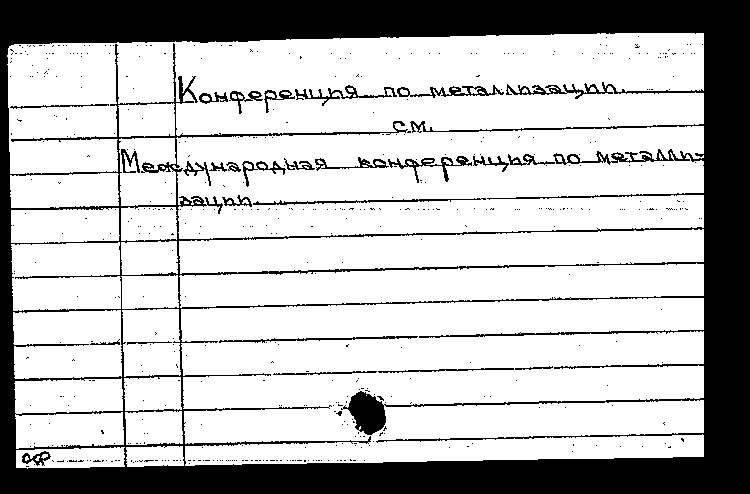 Конференция по металлизации.
см.
Международная конференция по металли-
зации.